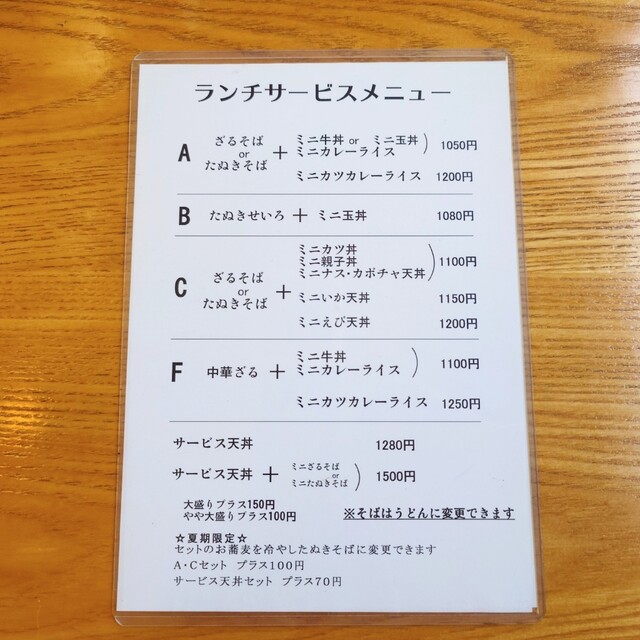 ランチサービスメニュー
A ざるそば or たぬきそば + ミニ牛丼 or ミニ玉丼 ミニカレーライス ) 1050円
ミニカツカレーライス 1200円
B たぬきせいろ + ミニ玉丼 1080円
C ざるそば or たぬきそば + ミニカツ丼 ミニ親子丼 ミニナス・カボチャ天丼 ) 1100円
ミニいか天丼 1150円
ミニえび天丼 1200円
F 中華ざる + ミニ牛丼 ミニカレーライス ) 1100円
ミニカツカレーライス 1250円
サービス天丼 1280円
サービス天丼 + ミニざるそば or ミニたぬきそば ) 1500円
大盛りプラス150円
やや大盛りプラス100円
※そばはうどんに変更できます
☆夏期限定☆
セットのお蕎麦を冷やしたぬきそばに変更できます
A・Cセット プラス100円
サービス天丼セット プラス70円